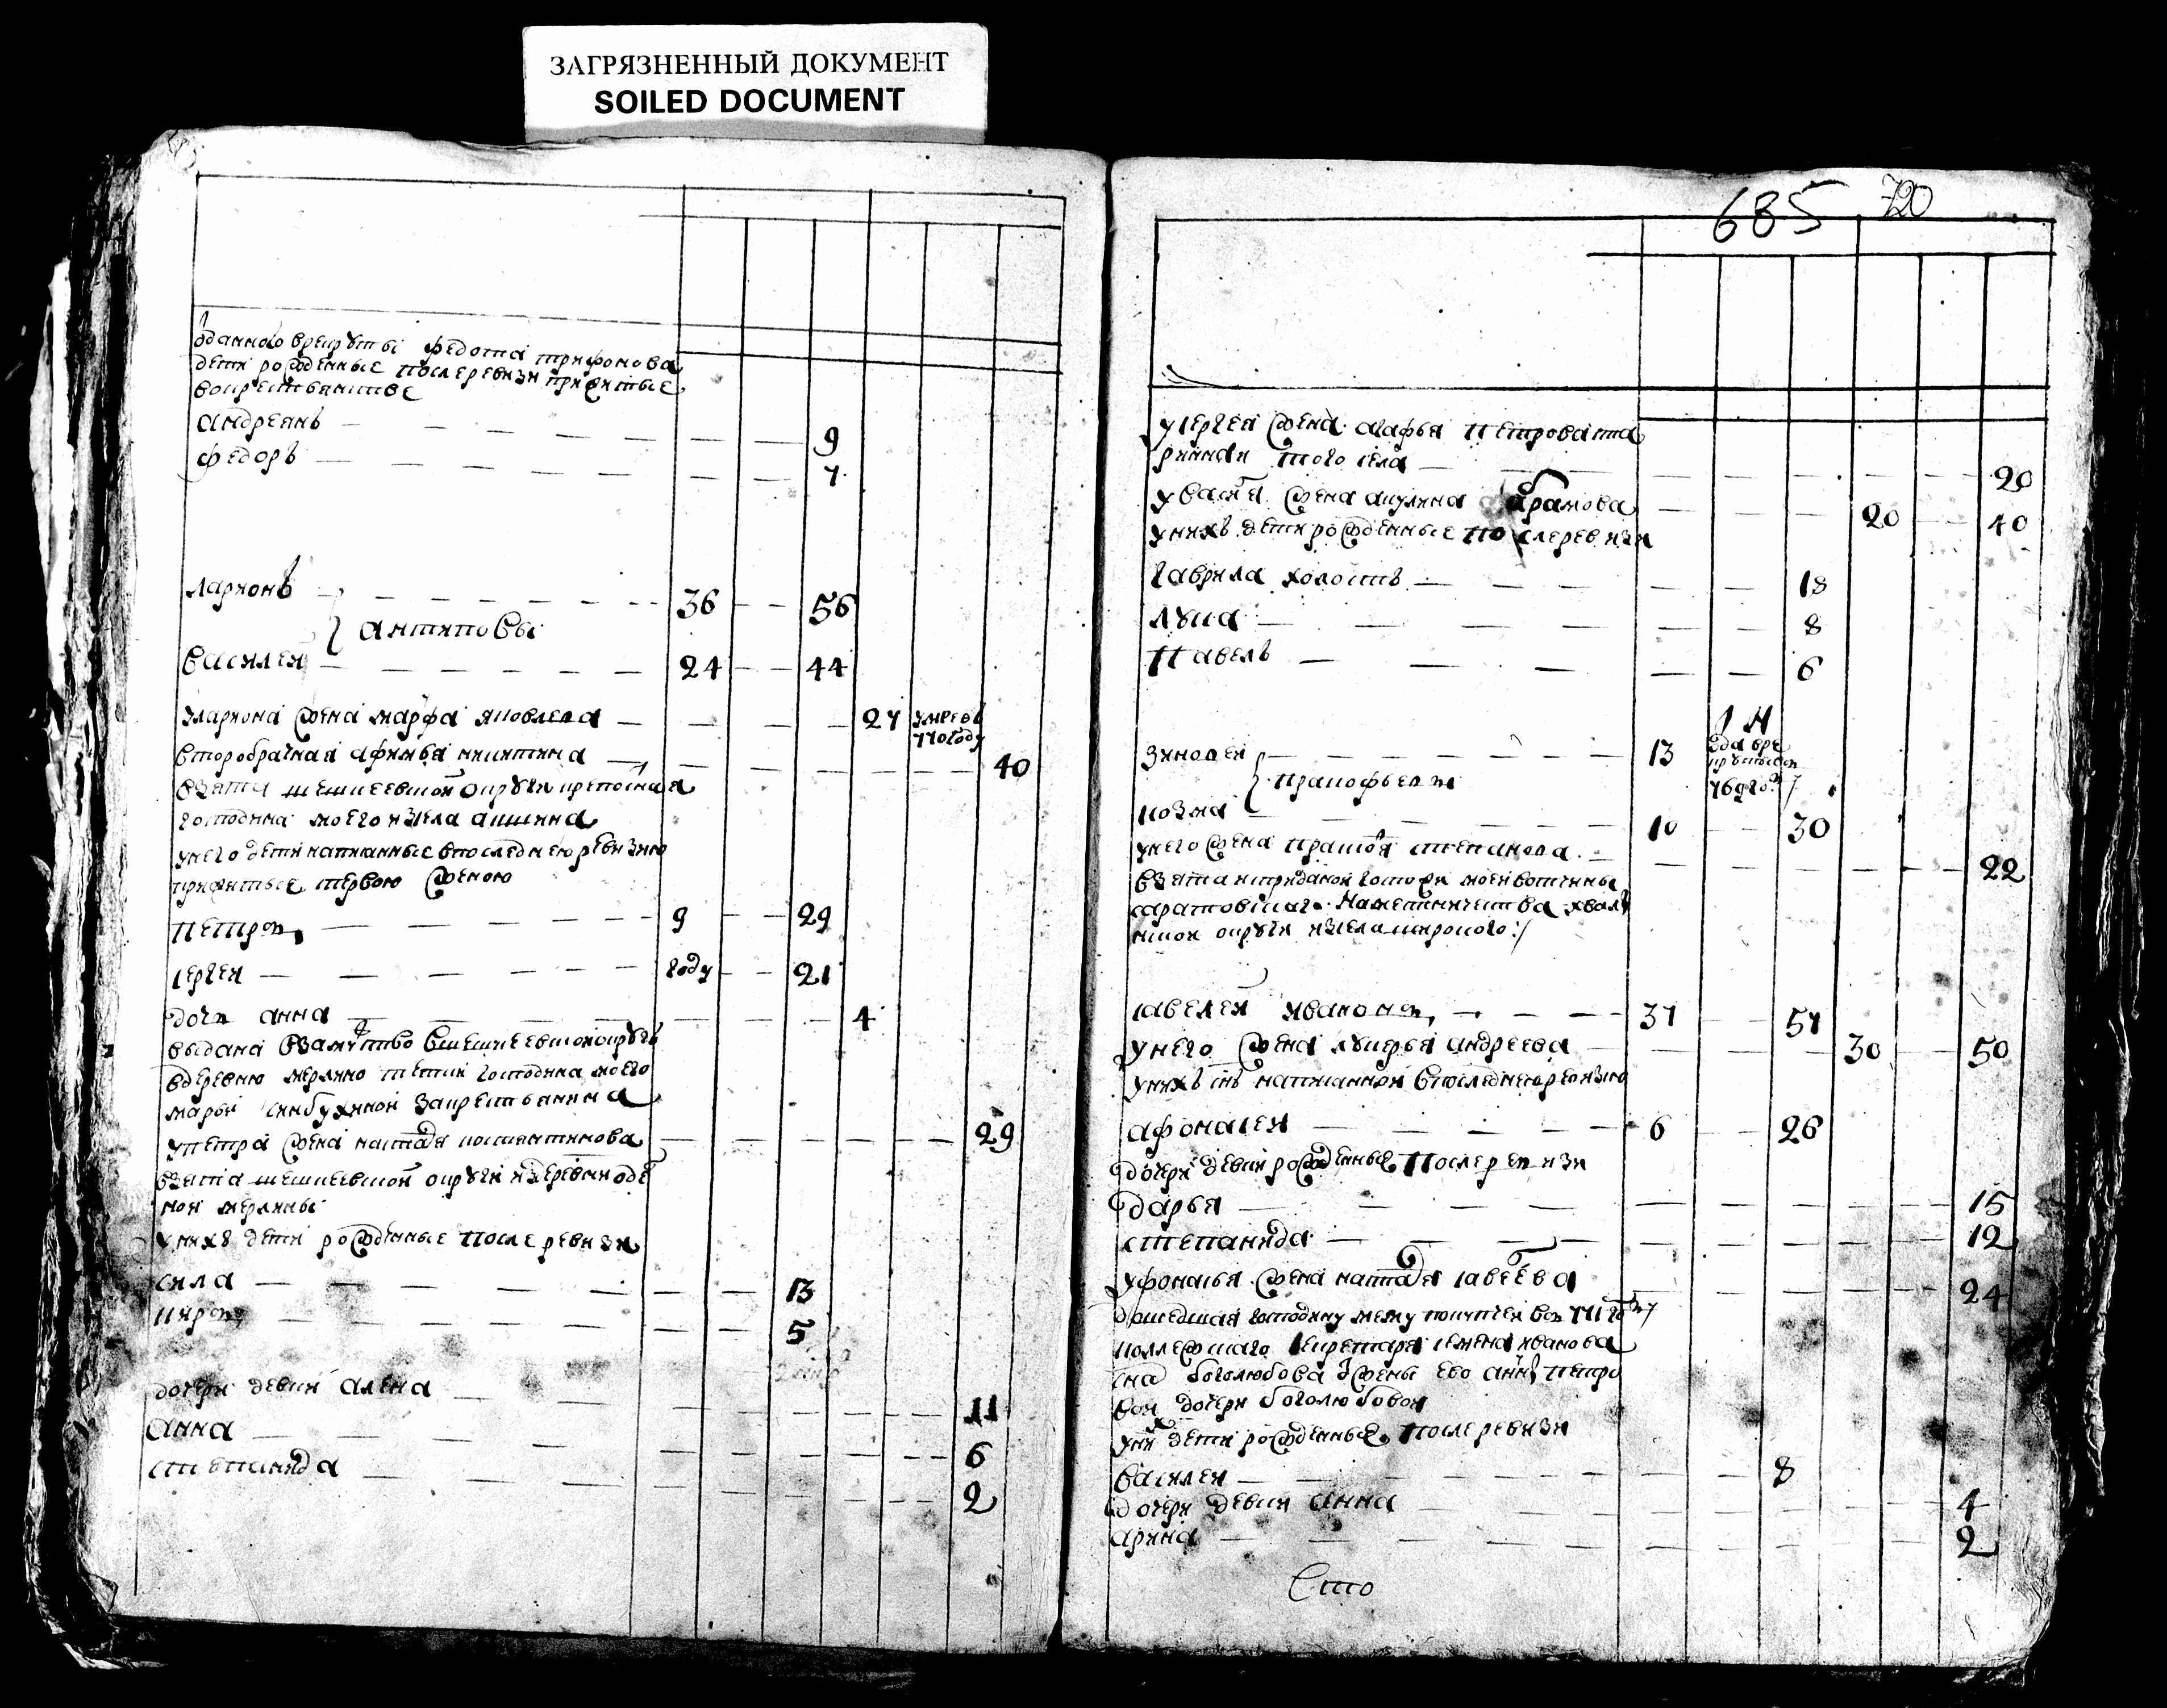 ЗАГРЯЗНЕННЫЙ ДОКУМЕНТ
SOILED DOCUMENT
зданного врекруты федота трифонова
дети рожденные послеревизи прижитые
вокрестьянстве
андреянъ 9
федоръ 7
ларионъ 36 56
антиповы
василей 24 44
улариона жена марфа яковлева 27 умре въ 770 году
второбрачная афимья никитина 40
взята шешкеевской округи
господина моего изсела
унего дети написанные впоследнею ревизию
прижитые первою женою
петръ 9 29
сергей году 21
дочь анна 4
выдана взамужство вшешкеевской округъ
вдеревню мерлино тетки господина моего
марьи засрестьянина
упетра жена настасья костентинова 29
взята шешкеевской округи издеревни оде
ной мерлины
унихъ дети рожденные после ревизи
сила 13
киръ 5
дочери девки алена 11
анна 6
степанида 2
685 720
усергея жена агафья петрова та
ринная того села 20
увасилья жена акулина абрамова 20 40
унихъ дети рожденные послеревизи
гаврила холостъ 18
лука 8
павелъ 6
зиновей 13 здан вре круты въ 769 году
прокофьевы
козма 10 30
унего жена прасковья степанова 22
взята исприданой госпожи моей вотчины
саратовскаго наместничества хвалы
нской округи изсела широкого
савелей ивановъ 37 57
унего жена лукерья андреева 30 50
унихъ сынъ написанной впоследнею ревизию
афонасей 6 26
дочери девки рожденные послеревизи
дарья 15
степанида 12
уфонасья жена настасья савеева 24
дошедшая господину моему покупкей въ 771 году
коллежскаго секретаря семена иванова
сына боголюбова жены ево анны петро
вой дочери боголюбовой
уних дети рожденные послеревизи
василей 8
дочери девки анна 4
арина 2
Сто